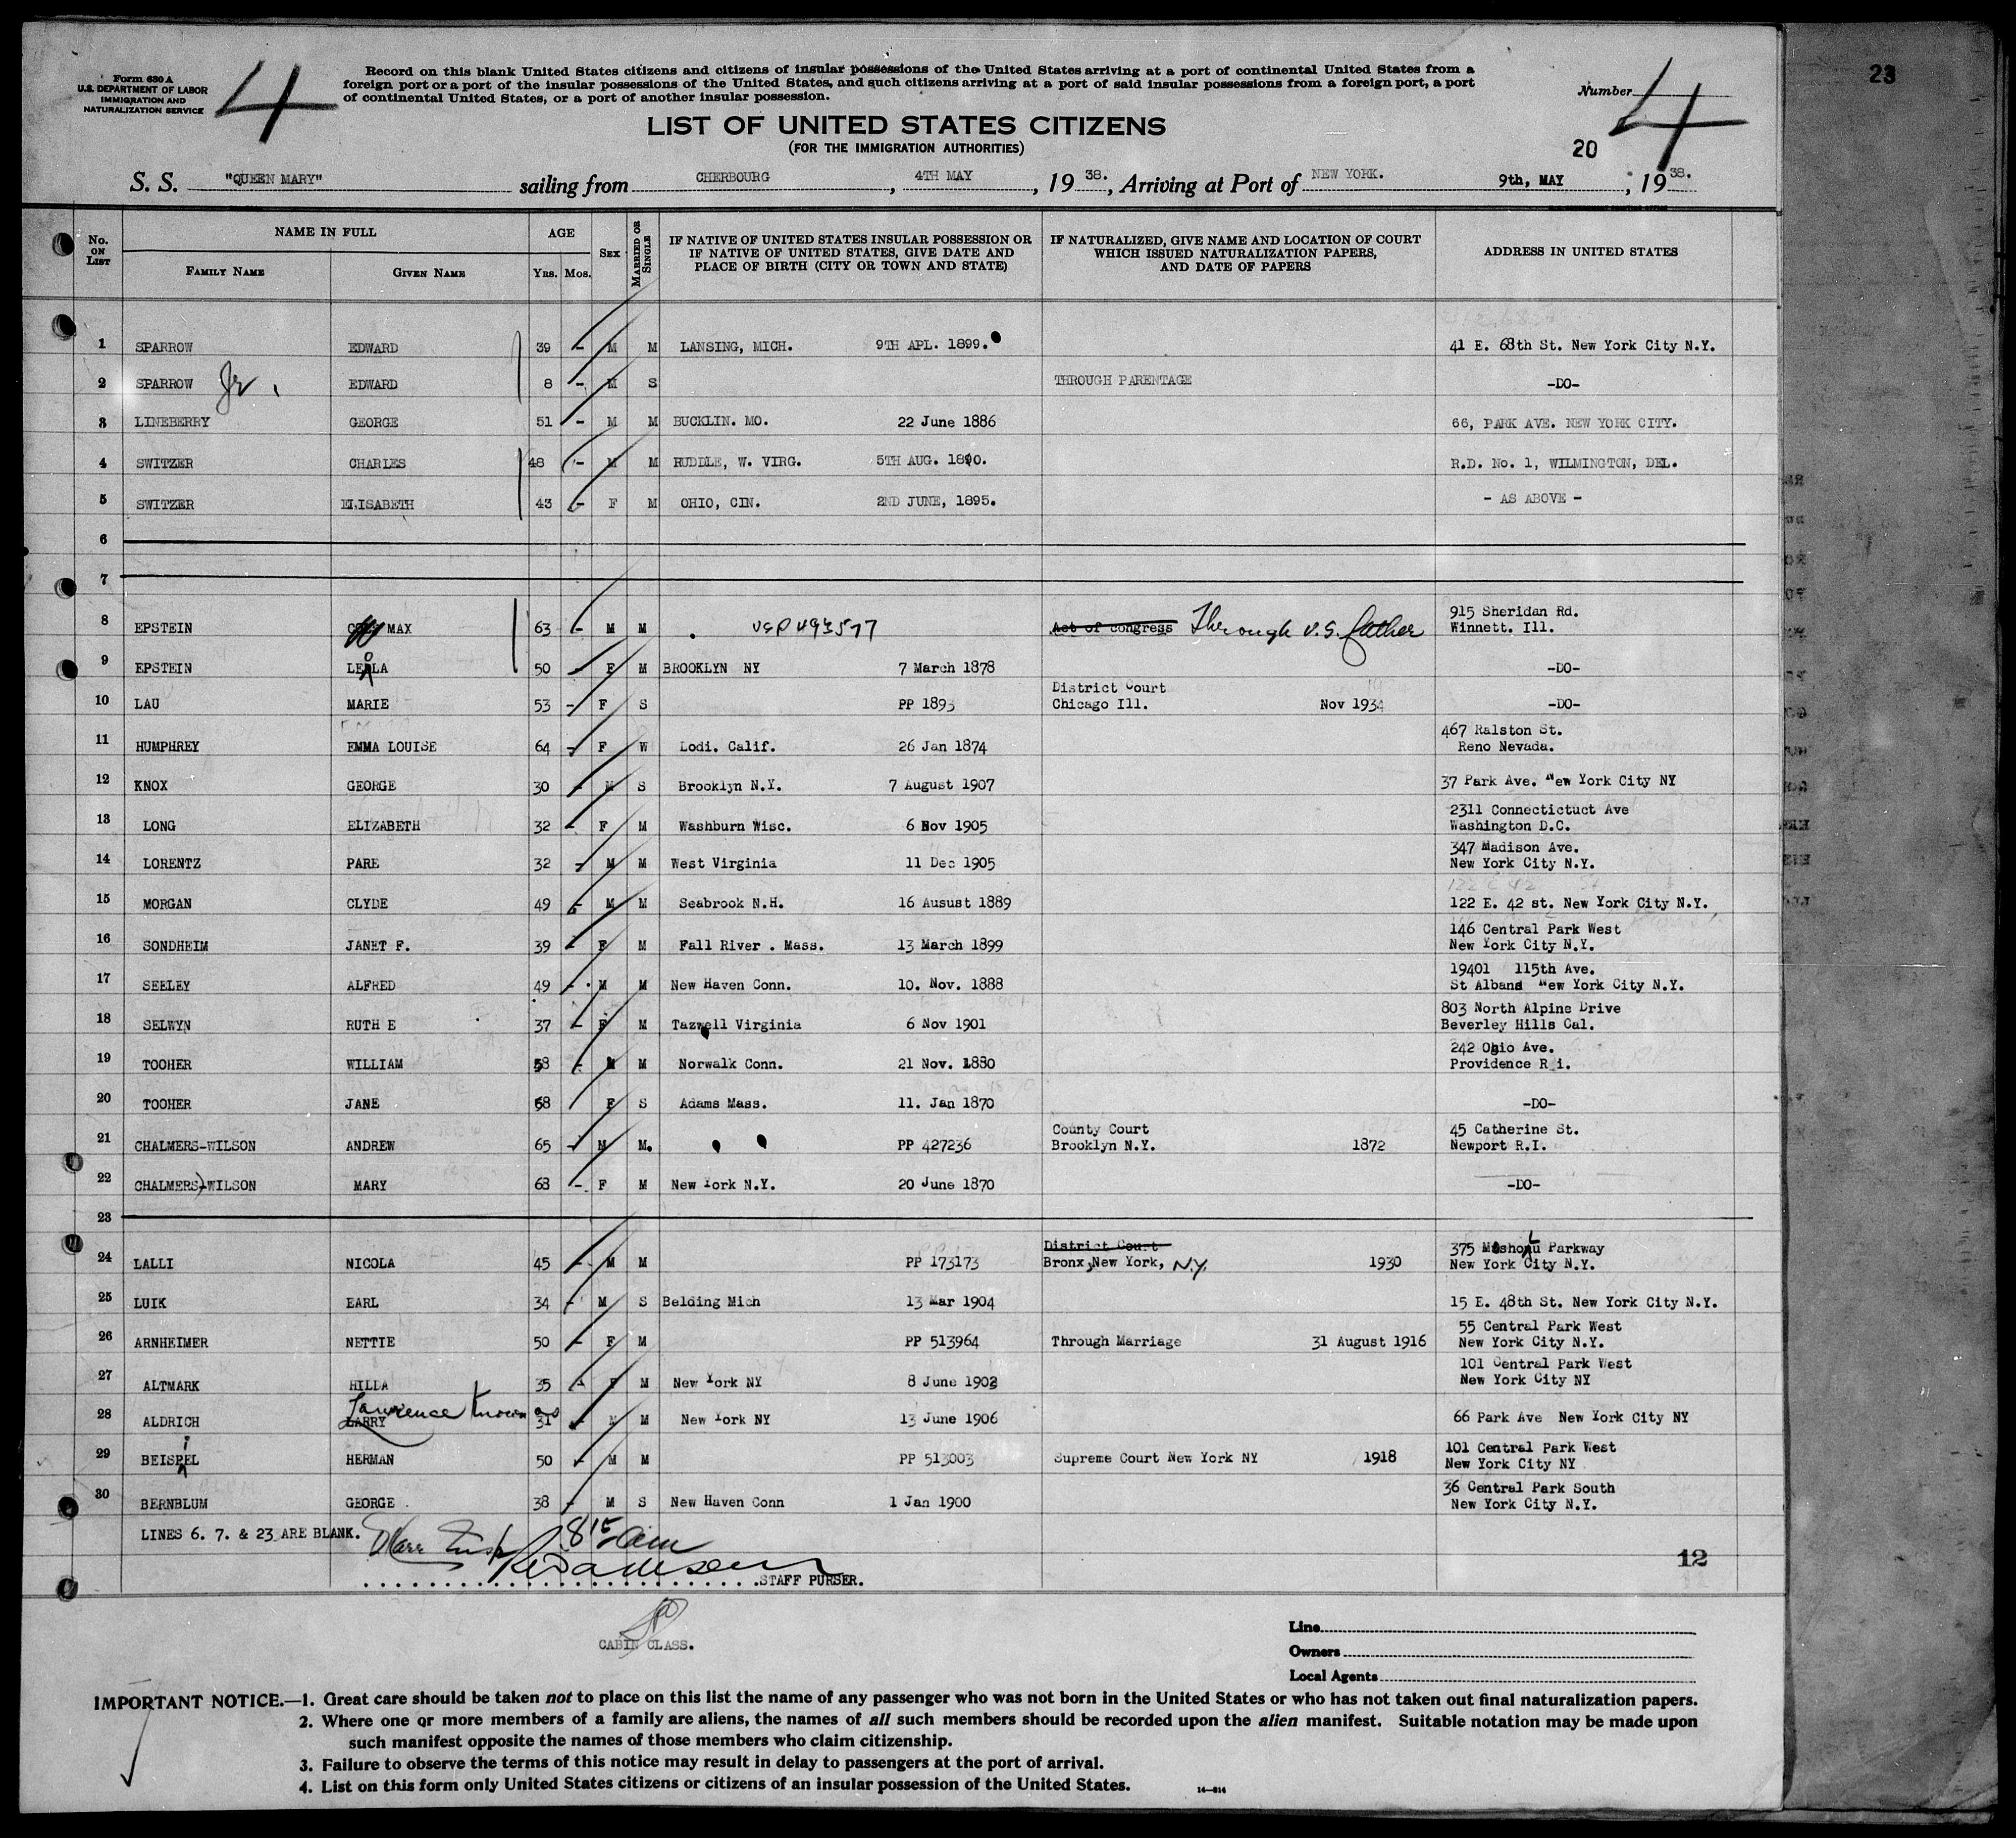 Form 630 A
U.S. DEPARTMENT OF LABOR
IMMIGRATION AND
NATURALIZATION SERVICE
4
Record on this blank United States citizens and citizens of insular possessions of the United States arriving at a port of continental United States from a
foreign port or a port of the insular possessions of the United States, and such citizens arriving at a port of said insular possessions from a foreign port, a port
of continental United States, or a port of another insular possession.
Number 4
23
LIST OF UNITED STATES CITIZENS
(FOR THE IMMIGRATION AUTHORITIES)
20
S. S. "QUEEN MARY" sailing from CHERBOURG, 4TH MAY, 1938., Arriving at Port of NEW YORK. 9th, MAY, 1938.
No. ON LIST
NAME IN FULL
FAMILY NAME
GIVEN NAME
AGE
YRS. MOS.
SEX
MARRIED OR SINGLE
IF NATIVE OF UNITED STATES INSULAR POSSESSION OR
IF NATIVE OF UNITED STATES, GIVE DATE AND
PLACE OF BIRTH (CITY OR TOWN AND STATE)
IF NATURALIZED, GIVE NAME AND LOCATION OF COURT
WHICH ISSUED NATURALIZATION PAPERS,
AND DATE OF PAPERS
ADDRESS IN UNITED STATES
1 SPARROW EDWARD 39 - M M LANSING, MICH. 9TH APL. 1899. 41 E. 68th St. New York City N.Y.
2 SPARROW Jr. EDWARD 8 - M S THROUGH PARENTAGE -DO-
3 LINEBERRY GEORGE 51 - M M BUCKLIN. MO. 22 June 1886 66, PARK AVE. NEW YORK CITY.
4 SWITZER CHARLES 48 - M M RUDDLE, W. VIRG. 5TH AUG. 1890. R.D. No. 1, WILMINGTON, DEL.
5 SWITZER ELISABETH 43 - F M OHIO, CIN. 2ND JUNE, 1895. - AS ABOVE -
6
7
8 EPSTEIN MAX 63 - M M USP 493577 Act of congress Through U.S. father 915 Sheridan Rd.
Winnett. Ill.
9 EPSTEIN LEOLA 50 - F M BROOKLYN NY 7 March 1878 -DO-
10 LAU MARIE 53 - F S PP 1893 District Court
Chicago Ill. Nov 1934 -DO-
11 HUMPHREY EMMA LOUISE 64 - F W Lodi. Calif. 26 Jan 1874 467 Ralston St.
Reno Nevada.
12 KNOX GEORGE 30 - M S Brooklyn N.Y. 7 August 1907 37 Park Ave. New York City NY
13 LONG ELIZABETH 32 - F M Washburn Wisc. 6 Nov 1905 2311 Connectictuct Ave
Washington D.C.
14 LORENTZ PARE 32 - M M West Virginia 11 Dec 1905 347 Madison Ave.
New York City N.Y.
15 MORGAN CLYDE 49 - M M Seabrook N.H. 16 Ausust 1889 122 E. 42 st. New York City N.Y.
16 SONDHEIM JANET F. 39 - F M Fall River . Mass. 13 March 1899 146 Central Park West
New York City N.Y.
17 SEELEY ALFRED 49 - M M New Haven Conn. 10. Nov. 1888 19401 115th Ave.
St Albans New York City N.Y.
18 SELWYN RUTH E 37 - F M Tazwell Virginia 6 Nov 1901 803 North Alpine Drive
Beverley Hills Cal.
19 TOOHER WILLIAM 58 - M M Norwalk Conn. 21 Nov. 1880 242 Ohio Ave.
Providence R i.
20 TOOHER JANE 68 F S Adams Mass. 11. Jan 1870 -DO-
21 CHALMERS-WILSON ANDREW 65 - M M. PP 427236 County Court
Brooklyn N.Y. 1872 45 Catherine St.
Newport R.I.
22 CHALMERS-WILSON MARY 68 - F M New York N.Y. 20 June 1870 -DO-
23
24 LALLI NICOLA 45 - M M PP 173173 District Court
Bronx, New York, N.Y. 1930 375 Mosholu Parkway
New York City N.Y.
25 LUIK EARL 34 - M S Belding Mich 13 Mar 1904 15 E. 48th St. New York City N.Y.
26 ARNHEIMER NETTIE 50 - F M PP 513964 Through Marriage 31 August 1916 55 Central Park West
New York City N.Y.
27 ALTMARK HILDA 35 - F M New York NY 8 June 1902 101 Central Park West
New York City NY
28 ALDRICH Lawrence known as LARRY 31 - M M New York NY 13 June 1906 66 Park Ave New York City NY
29 BEISPIEL HERMAN 50 - M M PP 513003 Supreme Court New York NY 1918 101 Central Park West
New York City NY
30 BERNBLUM GEORGE . 38 - M S New Haven Conn 1 Jan 1900 36 Central Park South
New York City N.Y.
LINES 6. 7. & 23 ARE BLANK.
8 15 am
12
STAFF PURSER.
CABIN CLASS.
Line
Owners
Local Agents
IMPORTANT NOTICE.—1. Great care should be taken not to place on this list the name of any passenger who was not born in the United States or who has not taken out final naturalization papers.
2. Where one or more members of a family are aliens, the names of all such members should be recorded upon the alien manifest. Suitable notation may be made upon
such manifest opposite the names of those members who claim citizenship.
3. Failure to observe the terms of this notice may result in delay to passengers at the port of arrival.
4. List on this form only United States citizens or citizens of an insular possession of the United States.
14—814